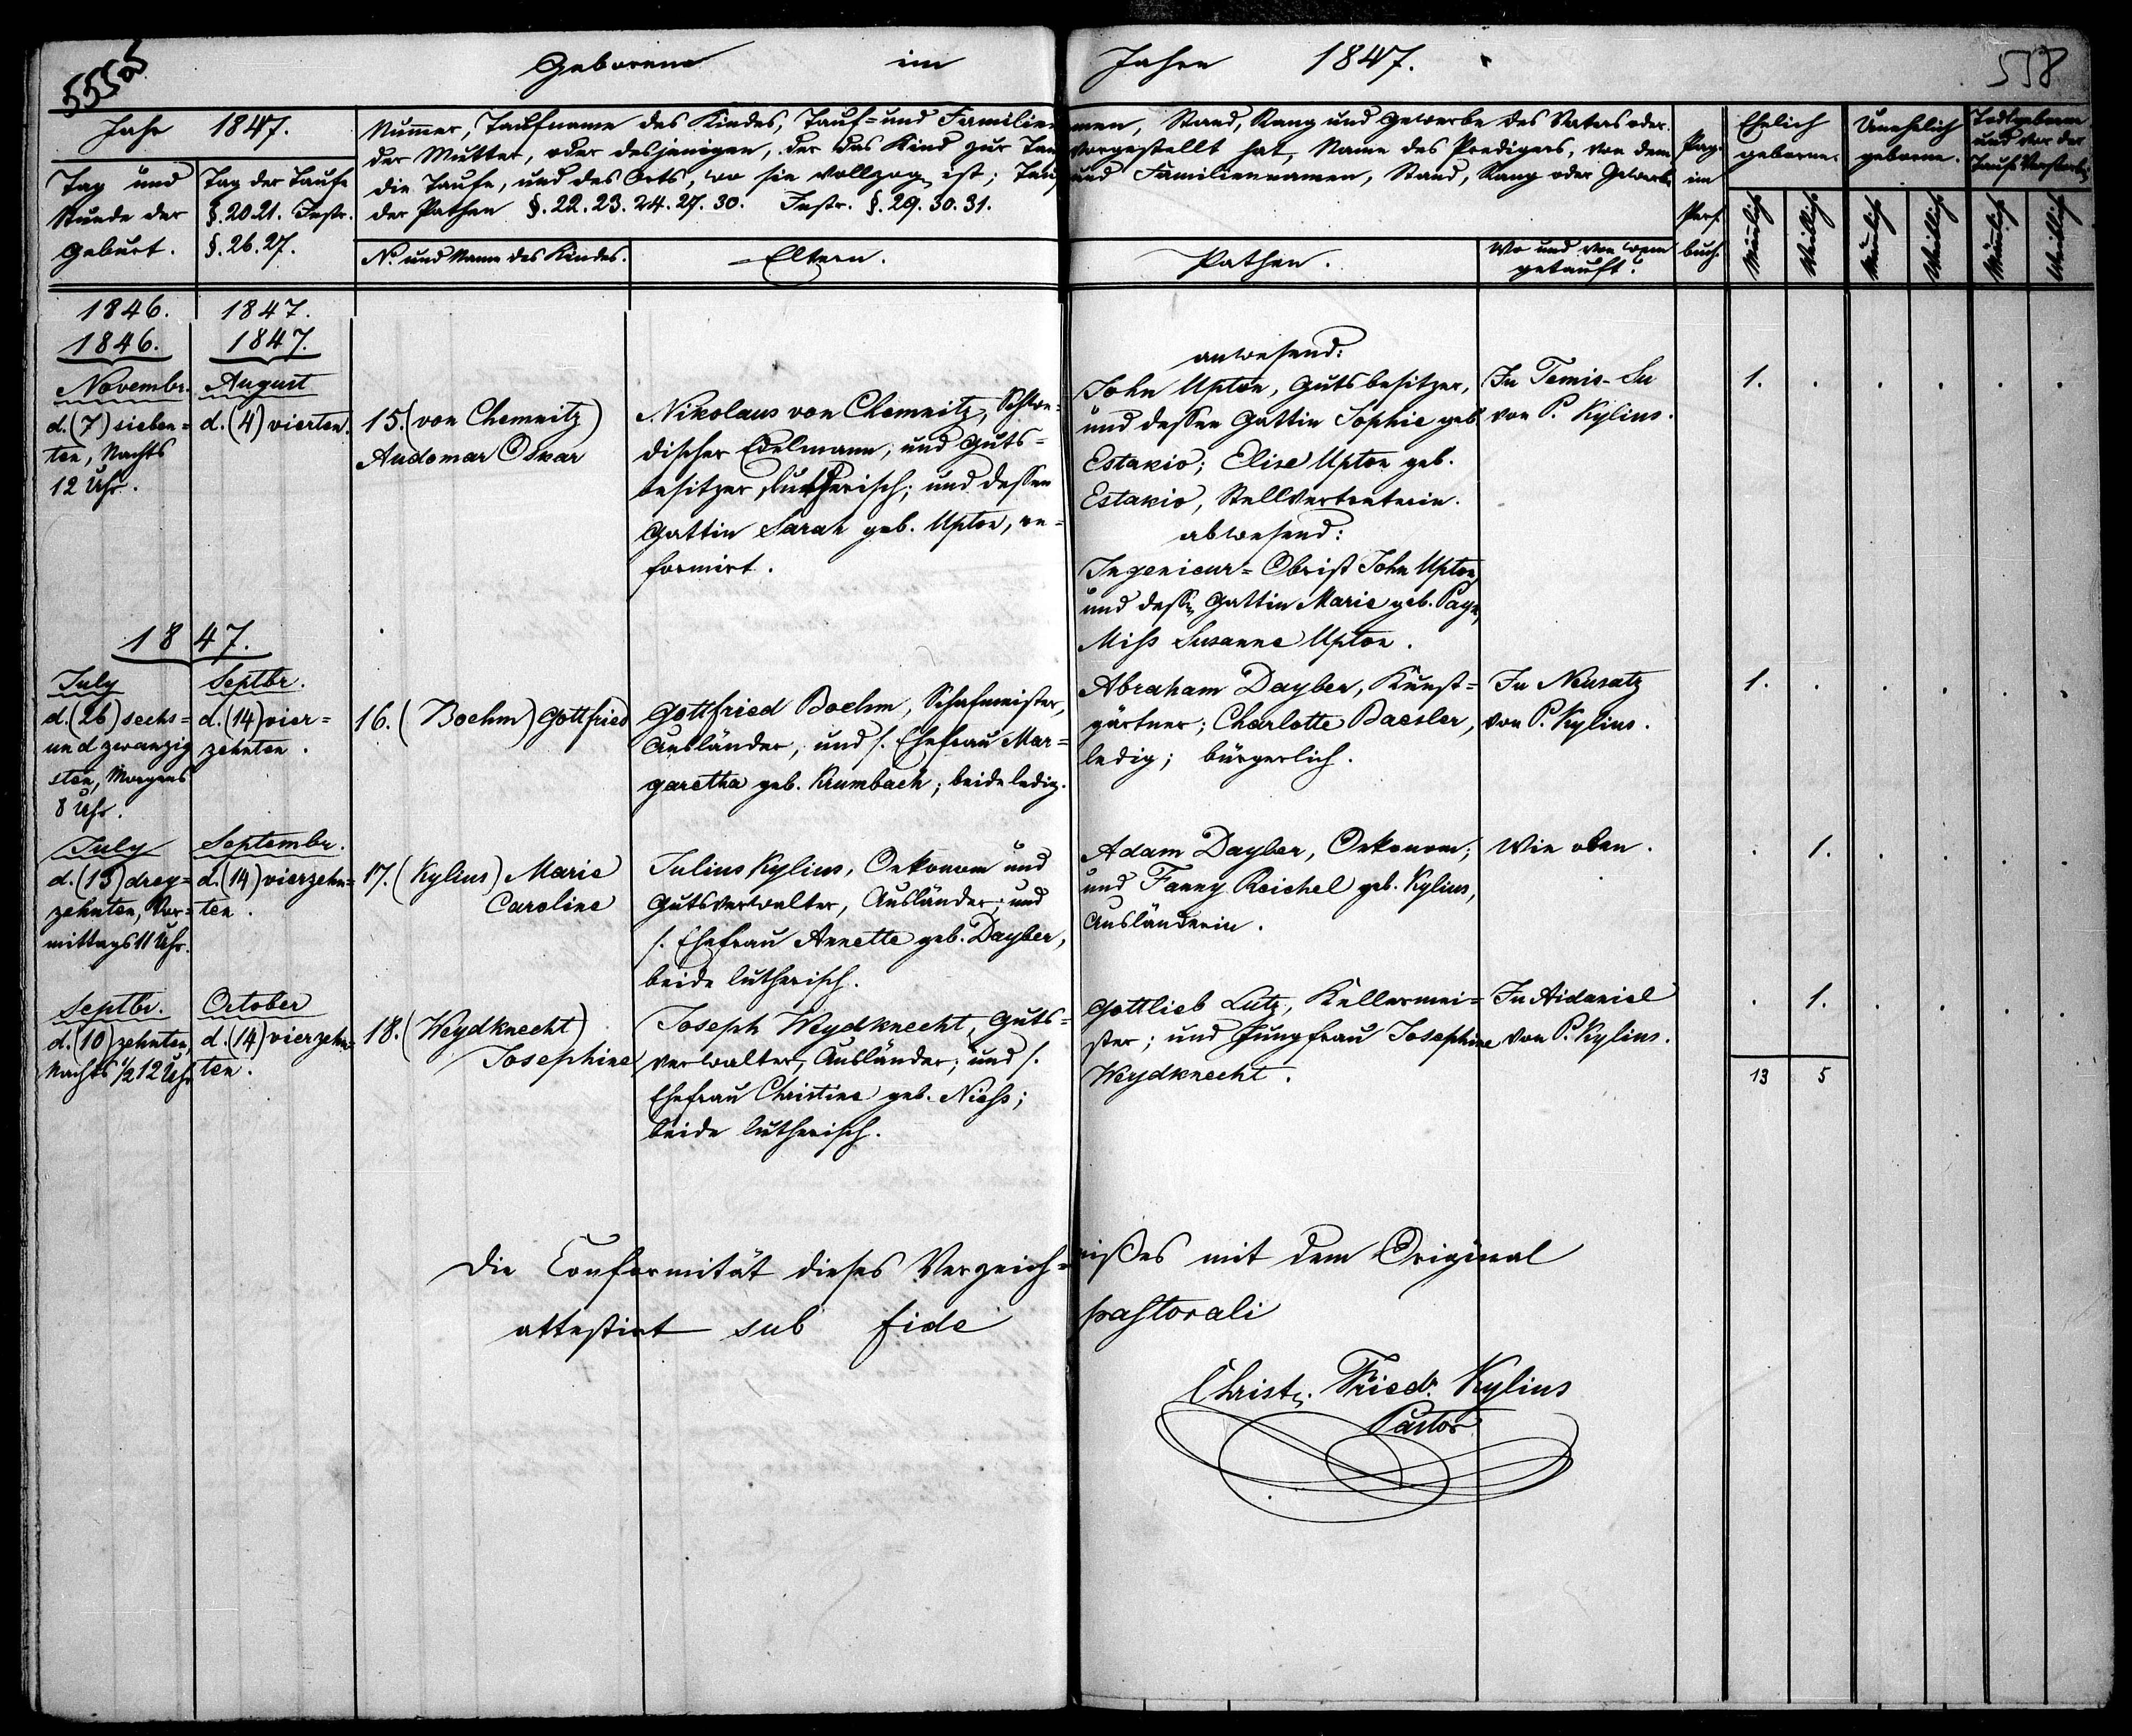 555 a
Geborene im Jahre 1847.
558
Jahr 1847.
Tag und
Stunde der
Geburt.
Tag der Taufe
§. 20.21. Instr.
§. 26.27.
Nummer, Taufname des Kindes, Tauf= und Familiennamen, Stand, Rang und Gewerbe des Vaters oder
der Mutter, oder desjenigen, der das Kind zur Taufe vorgestellt hat, Name des Predigers, von dem
die Taufe, und des Orts, wo sie vollzogn ist; Tauf und Familiennamen, Stand, Rang oder Gewerbe
der Pathen §. 22. 23. 24. 27. 30. Instr. §. 29. 30. 31.
No. und Name des Kindes.
Eltern.
Pathen.
Wo und von wem
getauft?
Pag.
im
Pers.
buch.
Ehelich
geborne.
Unehelich
geborne.
Todtgeborene
und vor der
Taufe Verstorb.
Männlich
Weiblich
Männlich
Weiblich
Männlich
Weiblich
1846.
1847.
1846.
Novembr.
d. (7) sieben=
ten, Nachts
12 Uhr.
1847.
August
d. (4) vierten.
15. (von Chemnitz)
Audomar Oskar
Nikolaus von Chemnitz,
discher Edelmann, und Guts=
besitzer, lutherisch; und dessen
Gattin Sarah geb. Upton, re=
formirt.
anwesend:
John Upton, Gutsbesitzer,
und dessen Gattin Sophie geb.
Estakio; Elise Upton geb.
Estakio, Stellvertreterin.
abwesend:
Ingenieur= Obrist John Upton,
und dessn Gattin Marie geb. Payn,
Miss Susanne Upton.
In Temis-Su
von P. Kylius.
1. . . . . .
1847.
July
d. (26) sechs=
und zwanzig
sten, Morgens
8 Uhr.
Septbr.
d. (14) vier=
zehnten.
16. (Boehm) Gottfried
Gottfried Boehm, Schafmeister,
Ausländer, und s. Ehefrau Mar=
garetha geb. Krumbach; beide ledig.
Abraham Dayber, Kunst=
gärtner; Charlotte Baesler,
ledig; bürgerlich.
In Neusatz
von P. Kylius.
1. . . . . .
July
d. (13) drey=
zehnten, Vor=
mittags 11 Uhr.
Septembr.
d. (14) vierzehn=
ten.
17. (Kylius) Marie
Caroline
Julius Kylius, Oekonom und
Gutsverwalter, Ausländer; und
s. Ehefrau Annette geb. Dayber,
beide lutherisch.
Adam Dayber, Oekonom;
und Fanny Reichel geb. Kylius,
Ausländerin.
Wie oben.
. 1. . . . .
Septbr.
d. (10) zehnten,
Nachts ½ 12 Uhr
October
d. (14) vierzehn=
ten.
18. (Weydknecht)
Josephine
Joseph Weydknecht, Guts=
verwalter, Ausländer; und s.
Ehefrau Christine geb. Niess;
beide lutherisch.
Gottlieb Lutz, Kellermei=
ster; und Jungfrau Josephine
Weydknecht.
In Aidaniel
von P. Kylius.
. 1. . . . .
13 5
Die Conformität dieses Verzeich=nisses mit dem Original
attestirt sub fide pastorali
Christn. Friedr. Kylius
Pastor